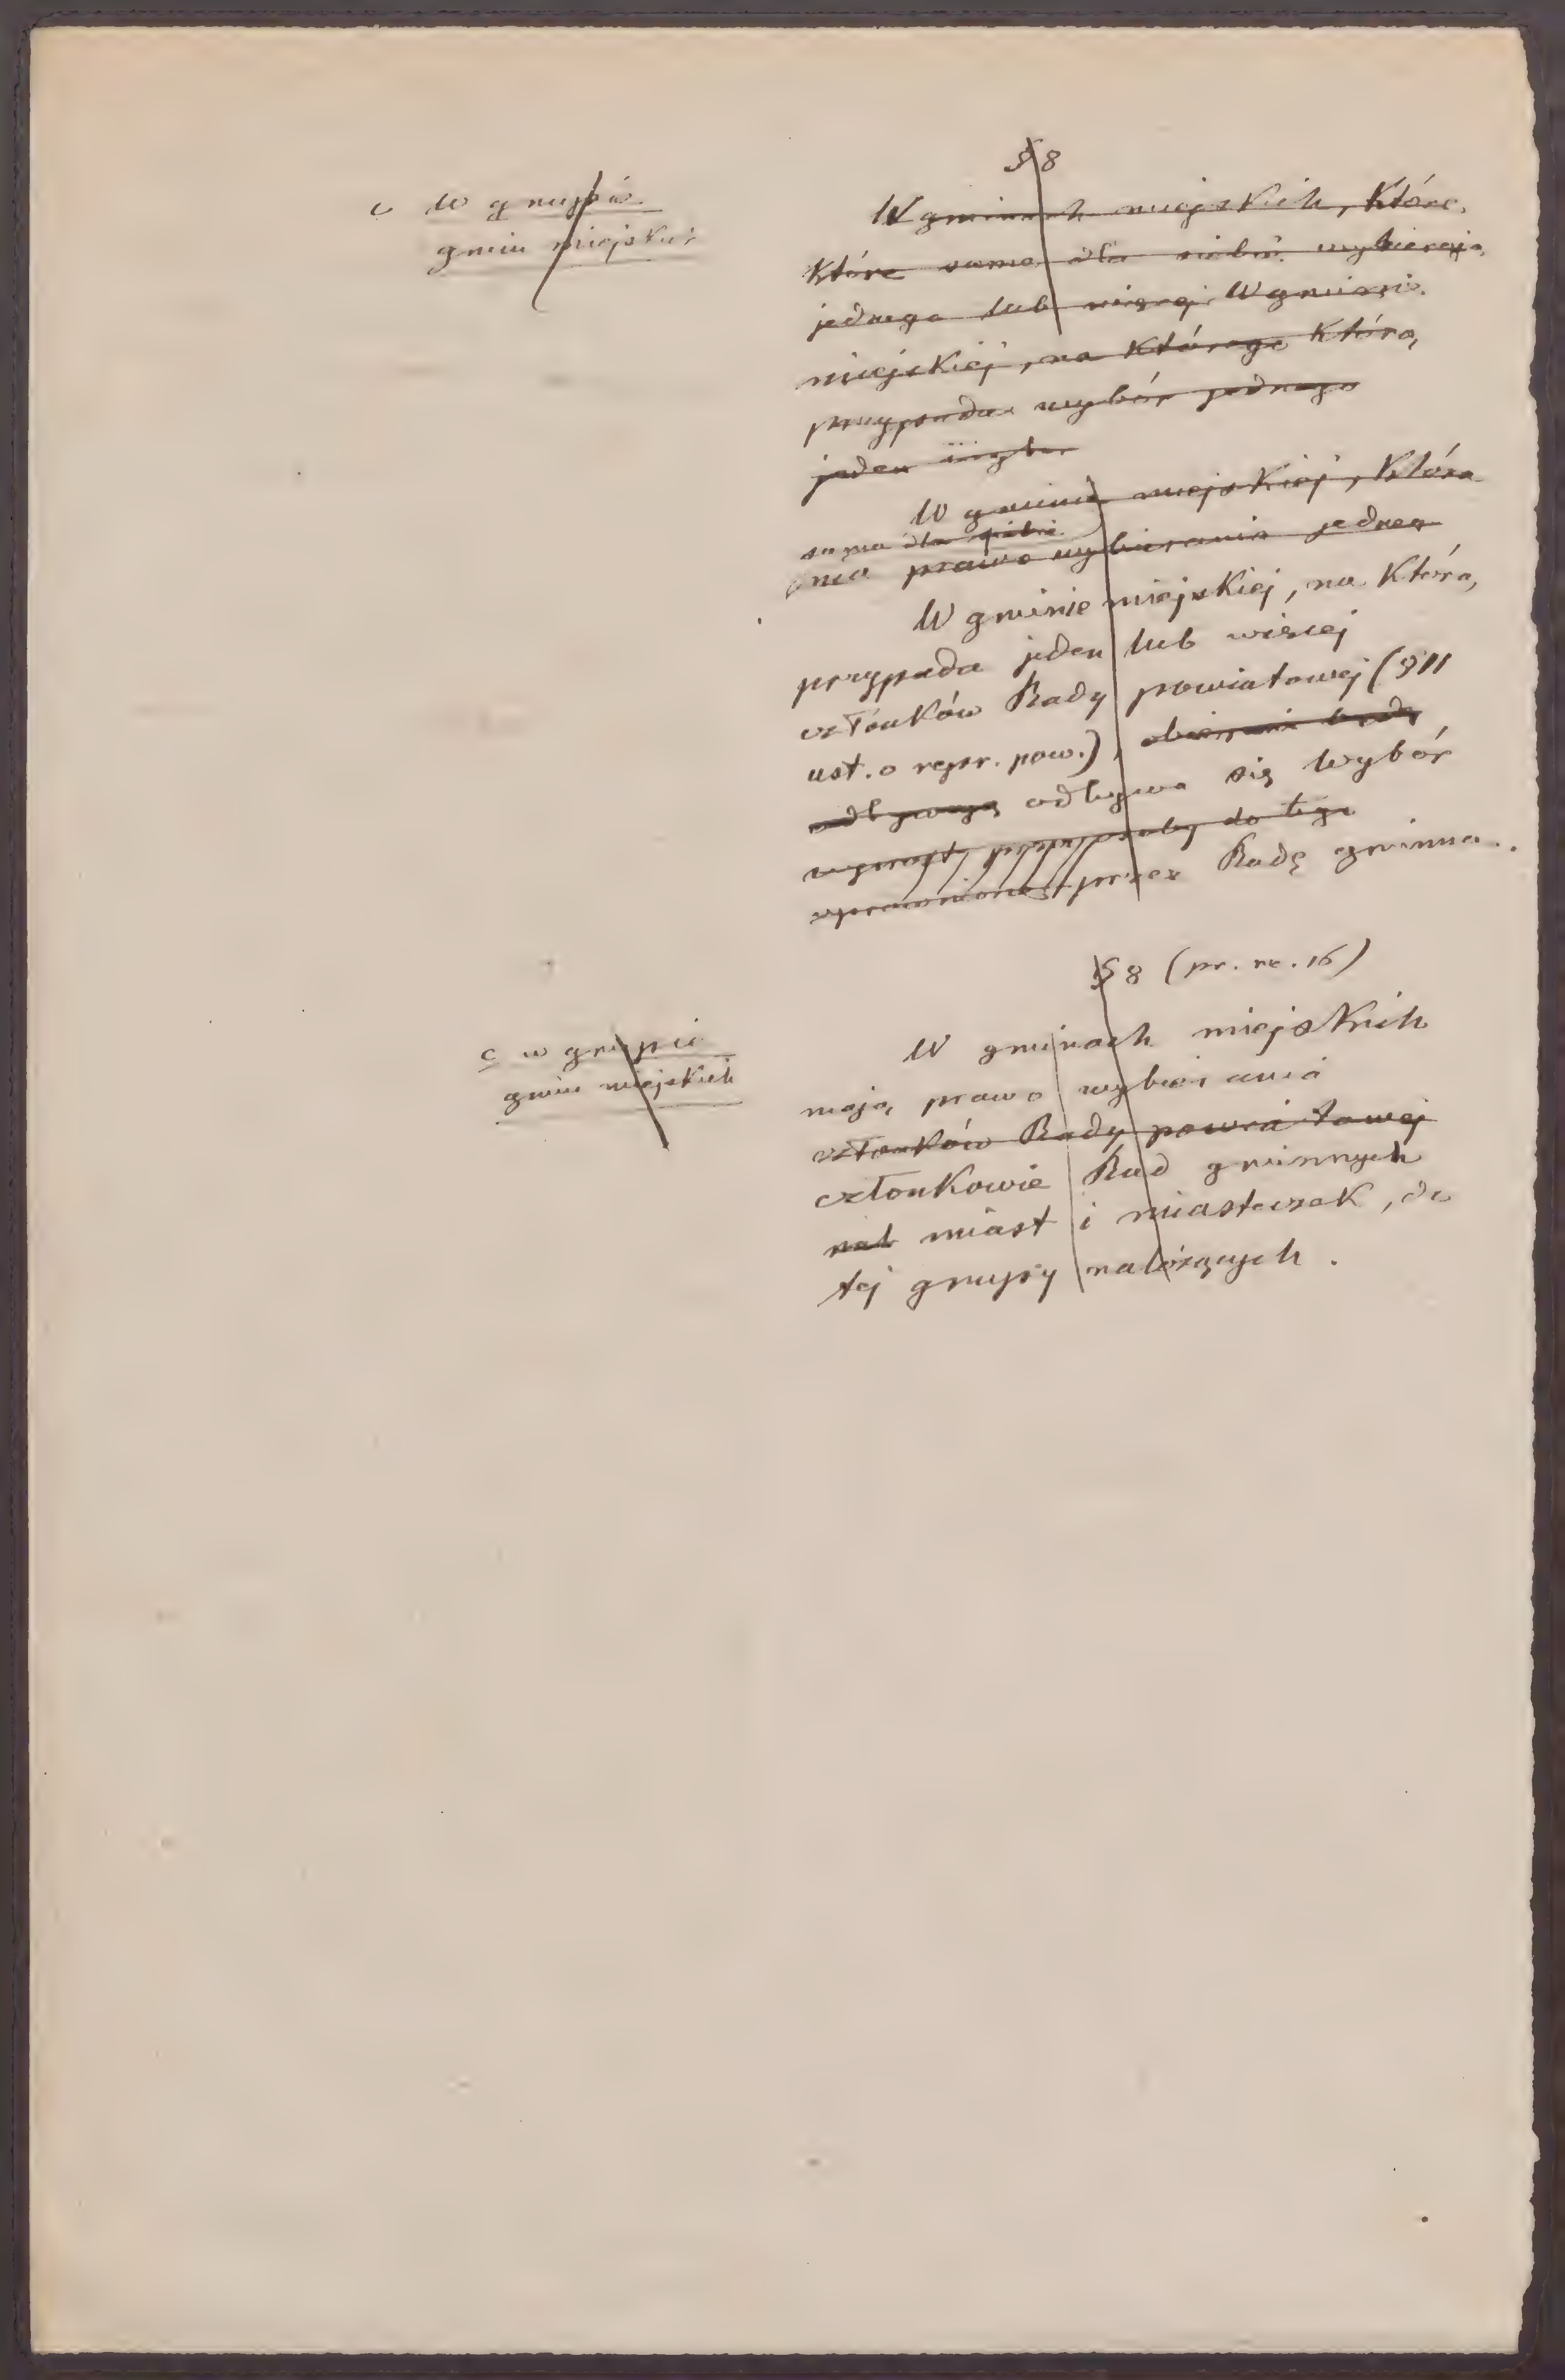 § 8
c W grupie
gmin miejskich
W gminach miejskich, które
które same dla siebie wybierają
jednego lub więcej W gminie
miejskiej, na którego którą
przypada wybór jednego
jeden
W gminie miejskiej, która
sama dla siebie
ma prawo wybierania jedneg
W gminie miejskiej, na którą
przypada jeden lub więcej
członków Rady powiatowej (§ 11
ust. o repr. pow.),
odbywają odbywa się wybór
do tego
uprawnione przez Radę gminną.
§ 8 (pr. rz. 16)
c w grupie
gmin miejskich
W gminach miejskich
mają prawo wybierania
członków Rady powiatowej
członkowie Rad gminnych
miast i miasteczek, do
tej grupy należących.